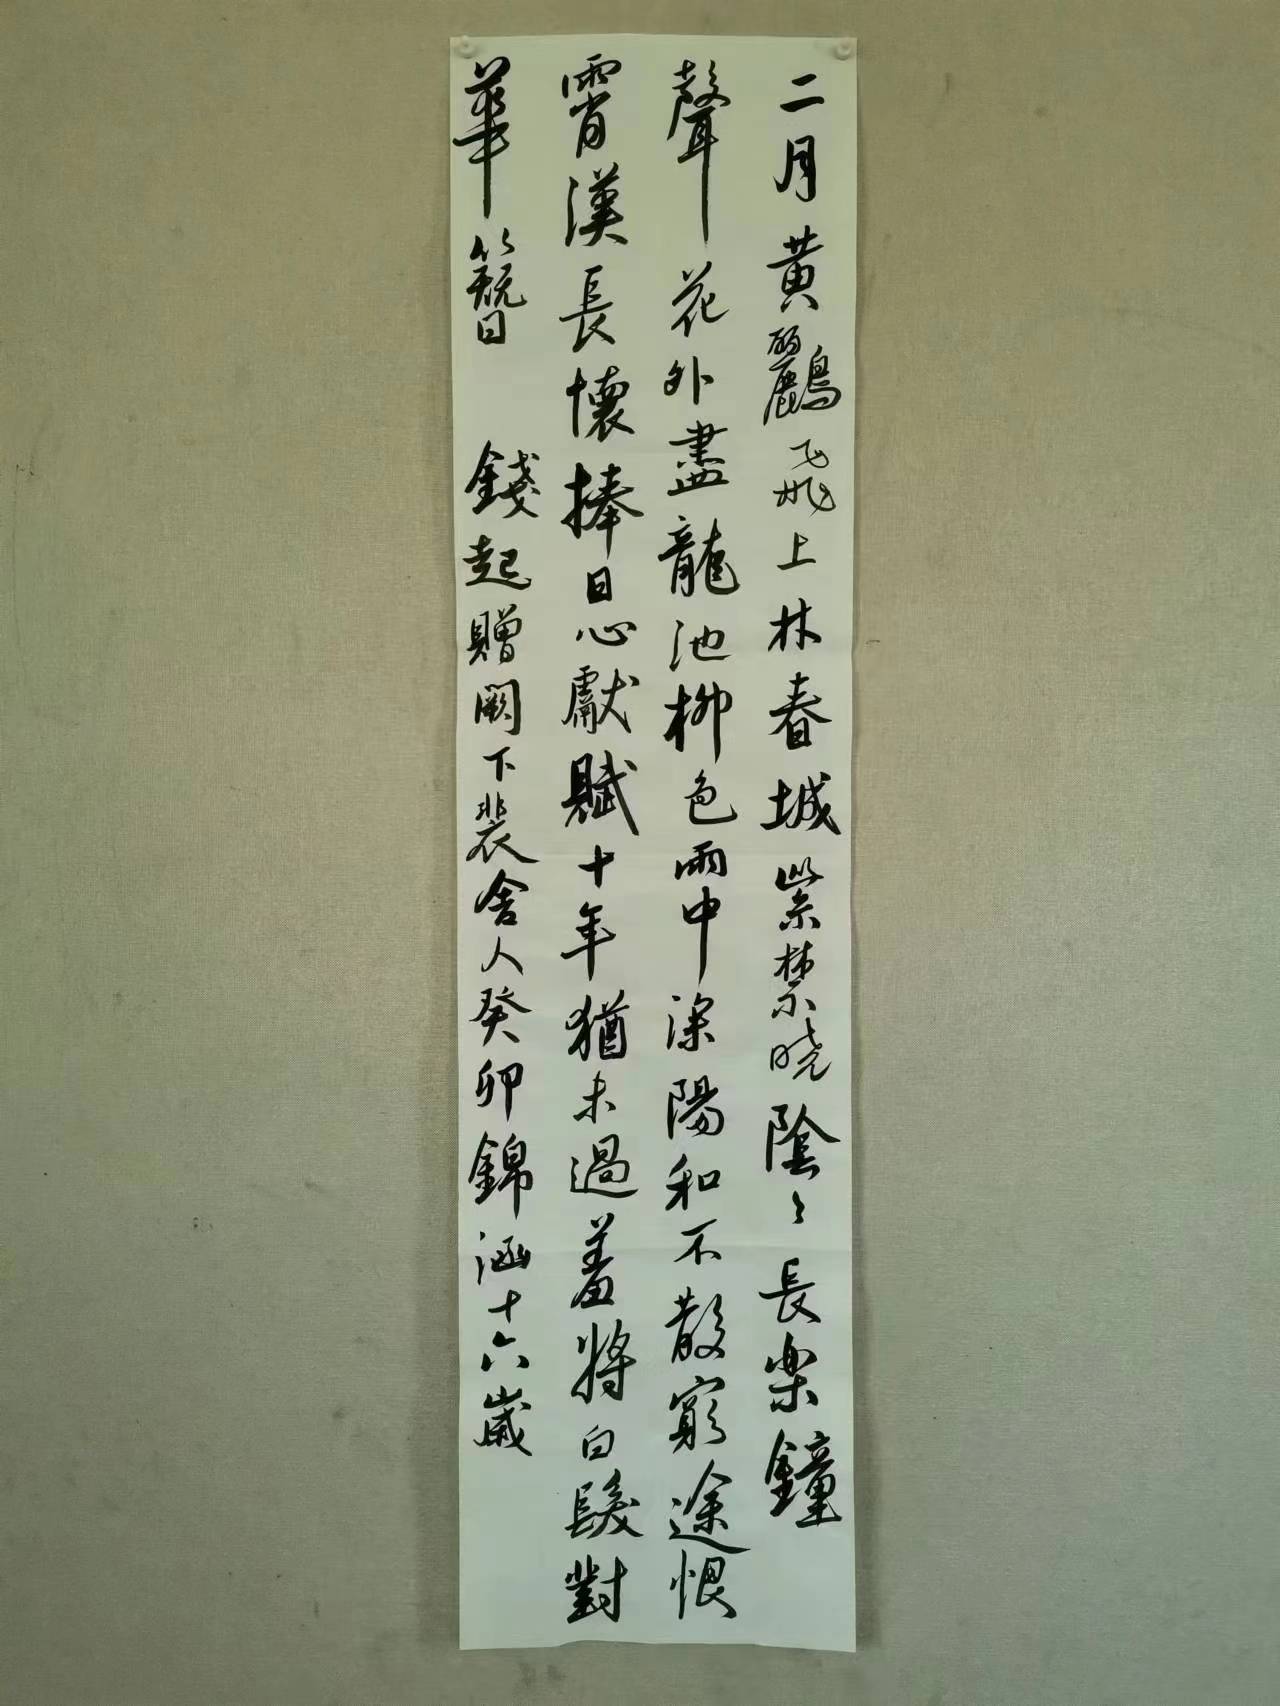 二月黃鸝飛上林春城紫禁曉陰〻長樂鐘
聲花外盡龍池柳色雨中深陽和不散窮途恨
霄漢長懷捧日心獻賦十年猶未過羞將白髮對
華簪 錢起贈闕下裴舍人癸卯錦涵十六歲